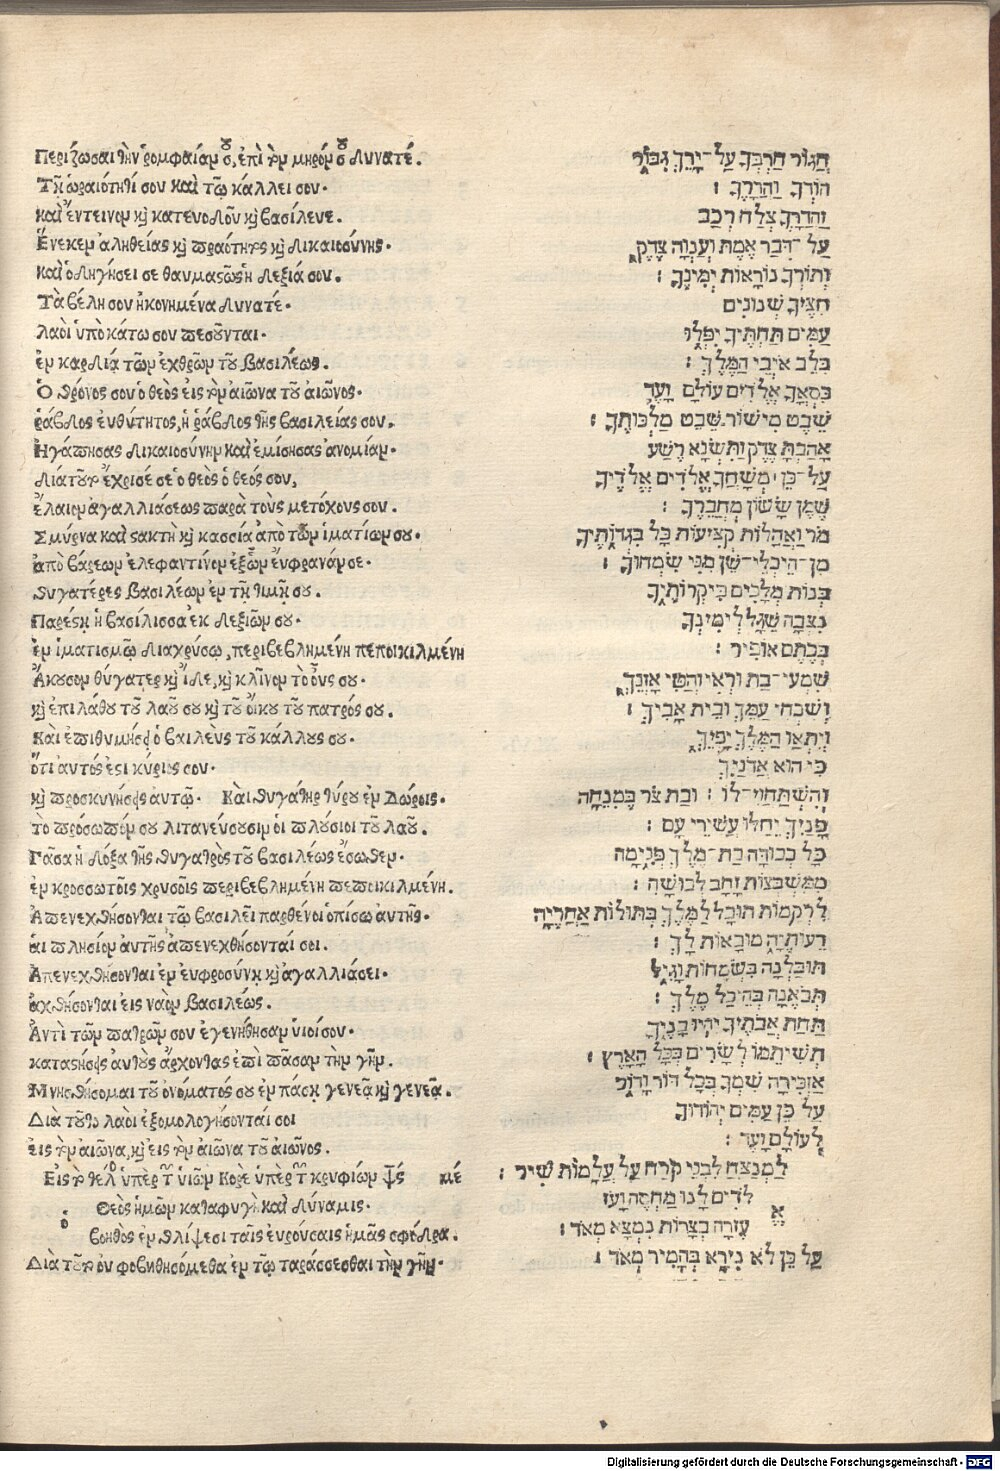 Περίζωσαι τὴν ῥομφαίαν σου, ἐπὶ τὸν μηρόν σου δυνατέ.
Τῇ ὡραιότητί σου καὶ τῷ κάλλει σου.
καὶ ἔντεινον καὶ κατευοδοῦ καὶ βασίλευε.
Ἕνεκεν ἀληθείας καὶ πραότητος καὶ δικαιοσύνης.
καὶ ὁδηγήσει σε θαυμαστῶς ἡ δεξιά σου.
Τὰ βέλη σου ἠκονημένα δυνατέ.
λαοὶ ὑποκάτω σου πεσοῦνται.
ἐν καρδίᾳ τῶν ἐχθρῶν τοῦ βασιλέως.
Ὁ θρόνος σου ὁ θεὸς εἰς τὸν αἰῶνα τοῦ αἰῶνος.
ῥάβδος εὐθύτητος, ἡ ῥάβδος τῆς βασιλείας σου.
Ἠγάπησας δικαιοσύνην καὶ ἐμίσησας ἀνομίαν.
διὰ τοῦτο ἔχρισέ σε ὁ θεὸς ὁ θεός σου,
ἔλαιον ἀγαλλιάσεως παρὰ τοὺς μετόχους σου.
Σμύρνα καὶ στακτὴ καὶ κασσία ἀπὸ τῶν ἱματίων σου.
ἀπὸ βάρεων ἐλεφαντίνων ἐξ ὧν εὔφρανάν σε.
θυγατέρες βασιλέων ἐν τῇ τιμῇ σου.
Παρέστη ἡ βασίλισσα ἐκ δεξιῶν σου.
ἐν ἱματισμῷ διαχρύσῳ, περιβεβλημένη πεποικιλμένη
Ἄκουσον θύγατερ καὶ ἴδε, καὶ κλῖνον τὸ οὖς σου.
καὶ ἐπιλάθου τοῦ λαοῦ σου καὶ τοῦ οἴκου τοῦ πατρός σου.
Καὶ ἐπιθυμήσει ὁ βασιλεὺς τοῦ κάλλους σου.
ὅτι αὐτός ἐστι κύριός σου.
καὶ προσκυνήσεις αὐτῷ. Καὶ θυγάτηρ τύρου ἐν δώροις.
τὸ πρόσωπόν σου λιτανεύσουσιν οἱ πλούσιοι τοῦ λαοῦ.
Πᾶσα ἡ δόξα τῆς θυγατρὸς τοῦ βασιλέως ἔσωθεν.
ἐν κροσσωτοῖς χρυσοῖς περιβεβλημένη πεποικιλμένη.
Ἀπενεχθήσονται τῷ βασιλεῖ παρθένοι ὀπίσω αὐτῆς.
αἱ πλησίον αὐτῆς ἀπενεχθήσονταί σοι.
Ἀπενεχθήσονται ἐν εὐφροσύνῃ καὶ ἀγαλλιάσει.
ἀχθήσονται εἰς ναὸν βασιλέως.
Ἀντὶ τῶν πατρῶν σου ἐγενήθησαν υἱοί σου.
καταστήσεις αὐτοὺς ἄρχοντας ἐπὶ πᾶσαν τὴν γῆν.
Μνησθήσομαι τοῦ ὀνόματός σου ἐν πάσῃ γενεᾷ καὶ γενεᾷ.
Διὰ τοῦτο λαοὶ ἐξομολογήσονταί σοι
εἰς τὸν αἰῶνα, καὶ εἰς τὸν αἰῶνα τοῦ αἰῶνος.
Εἰς τὸ τέλος ὑπὲρ τῶν υἱῶν Κορὲ ὑπὲρ τῶν κρυφίων ψς με
Θεὸς ἡμῶν καταφυγὴ καὶ δύναμις.
ὁ
βοηθὸς ἐν θλίψεσι ταῖς εὑρούσαις ἡμᾶς σφόδρα.
Διὰ τοῦτο οὐ φοβηθησόμεθα ἐν τῷ ταράσσεσθαι τὴν γῆν.
חֲגוֹר חַרְבְּךָ עַל־יָרֵךְ גִּבּוֹר
הוֹדְךָ וַהֲדָרֶךָ :
וַהֲדָרְךָ צְלַח רְכַב
עַל־דְּבַר אֱמֶת וְעַנְוָה צֶדֶק
וְתוֹרְךָ נוֹרָאוֹת יְמִינֶךָ :
חִצֶּיךָ שְׁנוּנִים
עַמִּים תַּחְתֶּיךָ יִפְּלוּ
בְּלֵב אוֹיְבֵי הַמֶּלֶךְ :
כִּסְאֲךָ אֱלֹדִים עוֹלָם וָעֶד
שֵׁבֶט מִישׁוֹר שֵׁבֶט מַלְכוּתֶךָ :
אָהַבְתָּ צֶדֶק וַתִּשְׂנָא רֶשַׁע
עַל־כֵּן מְשָׁחֲךָ אֱלֹדִים אֱלֹדֶיךָ
שֶׁמֶן שָׂשׂוֹן מֵחֲבֵרֶךָ :
מֹר וַאֲהָלוֹת קְצִיעוֹת כָּל בִּגְדוֹתֶיךָ
מִן־הֵיכְלֵי־שֵׁן מִנִּי שִׂמְּחוּךָ :
בְּנוֹת מְלָכִים בִּיקְּרוֹתֶיךָ
נִצְּבָה שֵׁגָל לִימִינְךָ
בְּכֶתֶם אוֹפִיר :
שִׁמְעִי־בַת וּרְאִי וְהַטִּי אָזְנֵךְ
וְשִׁכְחִי עַמֵּךְ וּבֵית אָבִיךְ :
וְיִתְאָו הַמֶּלֶךְ יָפְיֵךְ
כִּי הוּא אֲדֹנַיִךְ
וְהִשְׁתַּחֲוִי־לוֹ : וּבַת צֹר בְּמִנְחָה
פָּנַיִךְ יְחַלּוּ עֲשִׁירֵי עָם :
כָּל כְּבוּדָּה בַת־מֶלֶךְ פְּנִימָה
מִמִּשְׁבְּצוֹת זָהָב לְבוּשָׁהּ :
לִרְקָמוֹת תּוּבַל לַמֶּלֶךְ בְּתוּלוֹת אַחֲרֶיהָ
רֵעוֹתֶיהָ מוּבָאוֹת לָךְ :
תּוּבַלְנָה בִּשְׂמָחוֹת וָגִיל
תְּבֹאֶנָה בְּהֵיכַל מֶלֶךְ :
תַּחַת אֲבֹתֶיךָ יִהְיוּ בָנֶיךָ
תְּשִׁיתֵמוֹ לְשָׂרִים בְּכָל הָאָרֶץ :
אַזְכִּירָה שִׁמְךָ בְּכָל דּוֹר וָדוֹר
עַל כֵּן עַמִּים יְהוֹדוּךָ
לְעוֹלָם וָעֶד :
לַמְנַצֵּחַ לִבְנֵי קֹרַח עַל עֲלָמוֹת שִׁיר :
לֹדִים לָנוּ מַחֲסֶה וָעֹז
אֱ
עֶזְרָה בְצָרוֹת נִמְצָא מְאֹד :
עַל כֵּן לֹא נִירָא בְּהָמִיר מְאֹד :
Digitalisierung gefördert durch die Deutsche Forschungsgemeinschaft - DFG